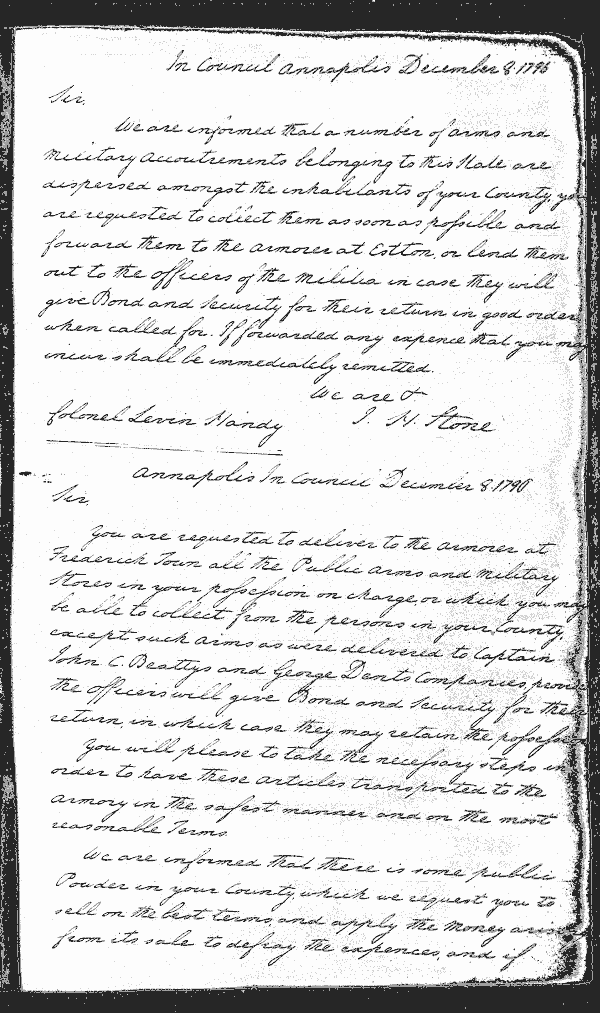 In Council Annapolis December 8. 1795
Sir,
We are informed that a number of arms and
Military Accoutrements belonging to this State are
dispersed amongst the inhabitants of your County, you
are requested to collect them as soon as possible and
forward them to the armorer at Eston, or lend them
out to the officers of the Militia in case they will
give Bond and Security for their return in good order
when called for. If forwarded any expence that you may
incur shall be immediately remitted.
We are &
J. H. Stone
Colonel Levin Handy
Annapolis In Council December 8. 1790
Sir.
You are requested to deliver to the armorer at
Frederick Town all the Public Arms and Military
Stores in your possession on charge, or which you may
be able to collect from the persons in your County,
except such Arms as were delivered to Captain
John C. Beattys and George Dents Companies, provided
the officers will give Bond and Security for their
return, in which case they may retain the possession
You will please to take the necessary steps in
order to have these articles transported to the
armory in the safest manner and on the most
reasonable Terms.
We are informed that there is some public
Powder in your County, which we request you to
sell on the best terms, and apply the Money arising
from its sale to defray the expences, and if